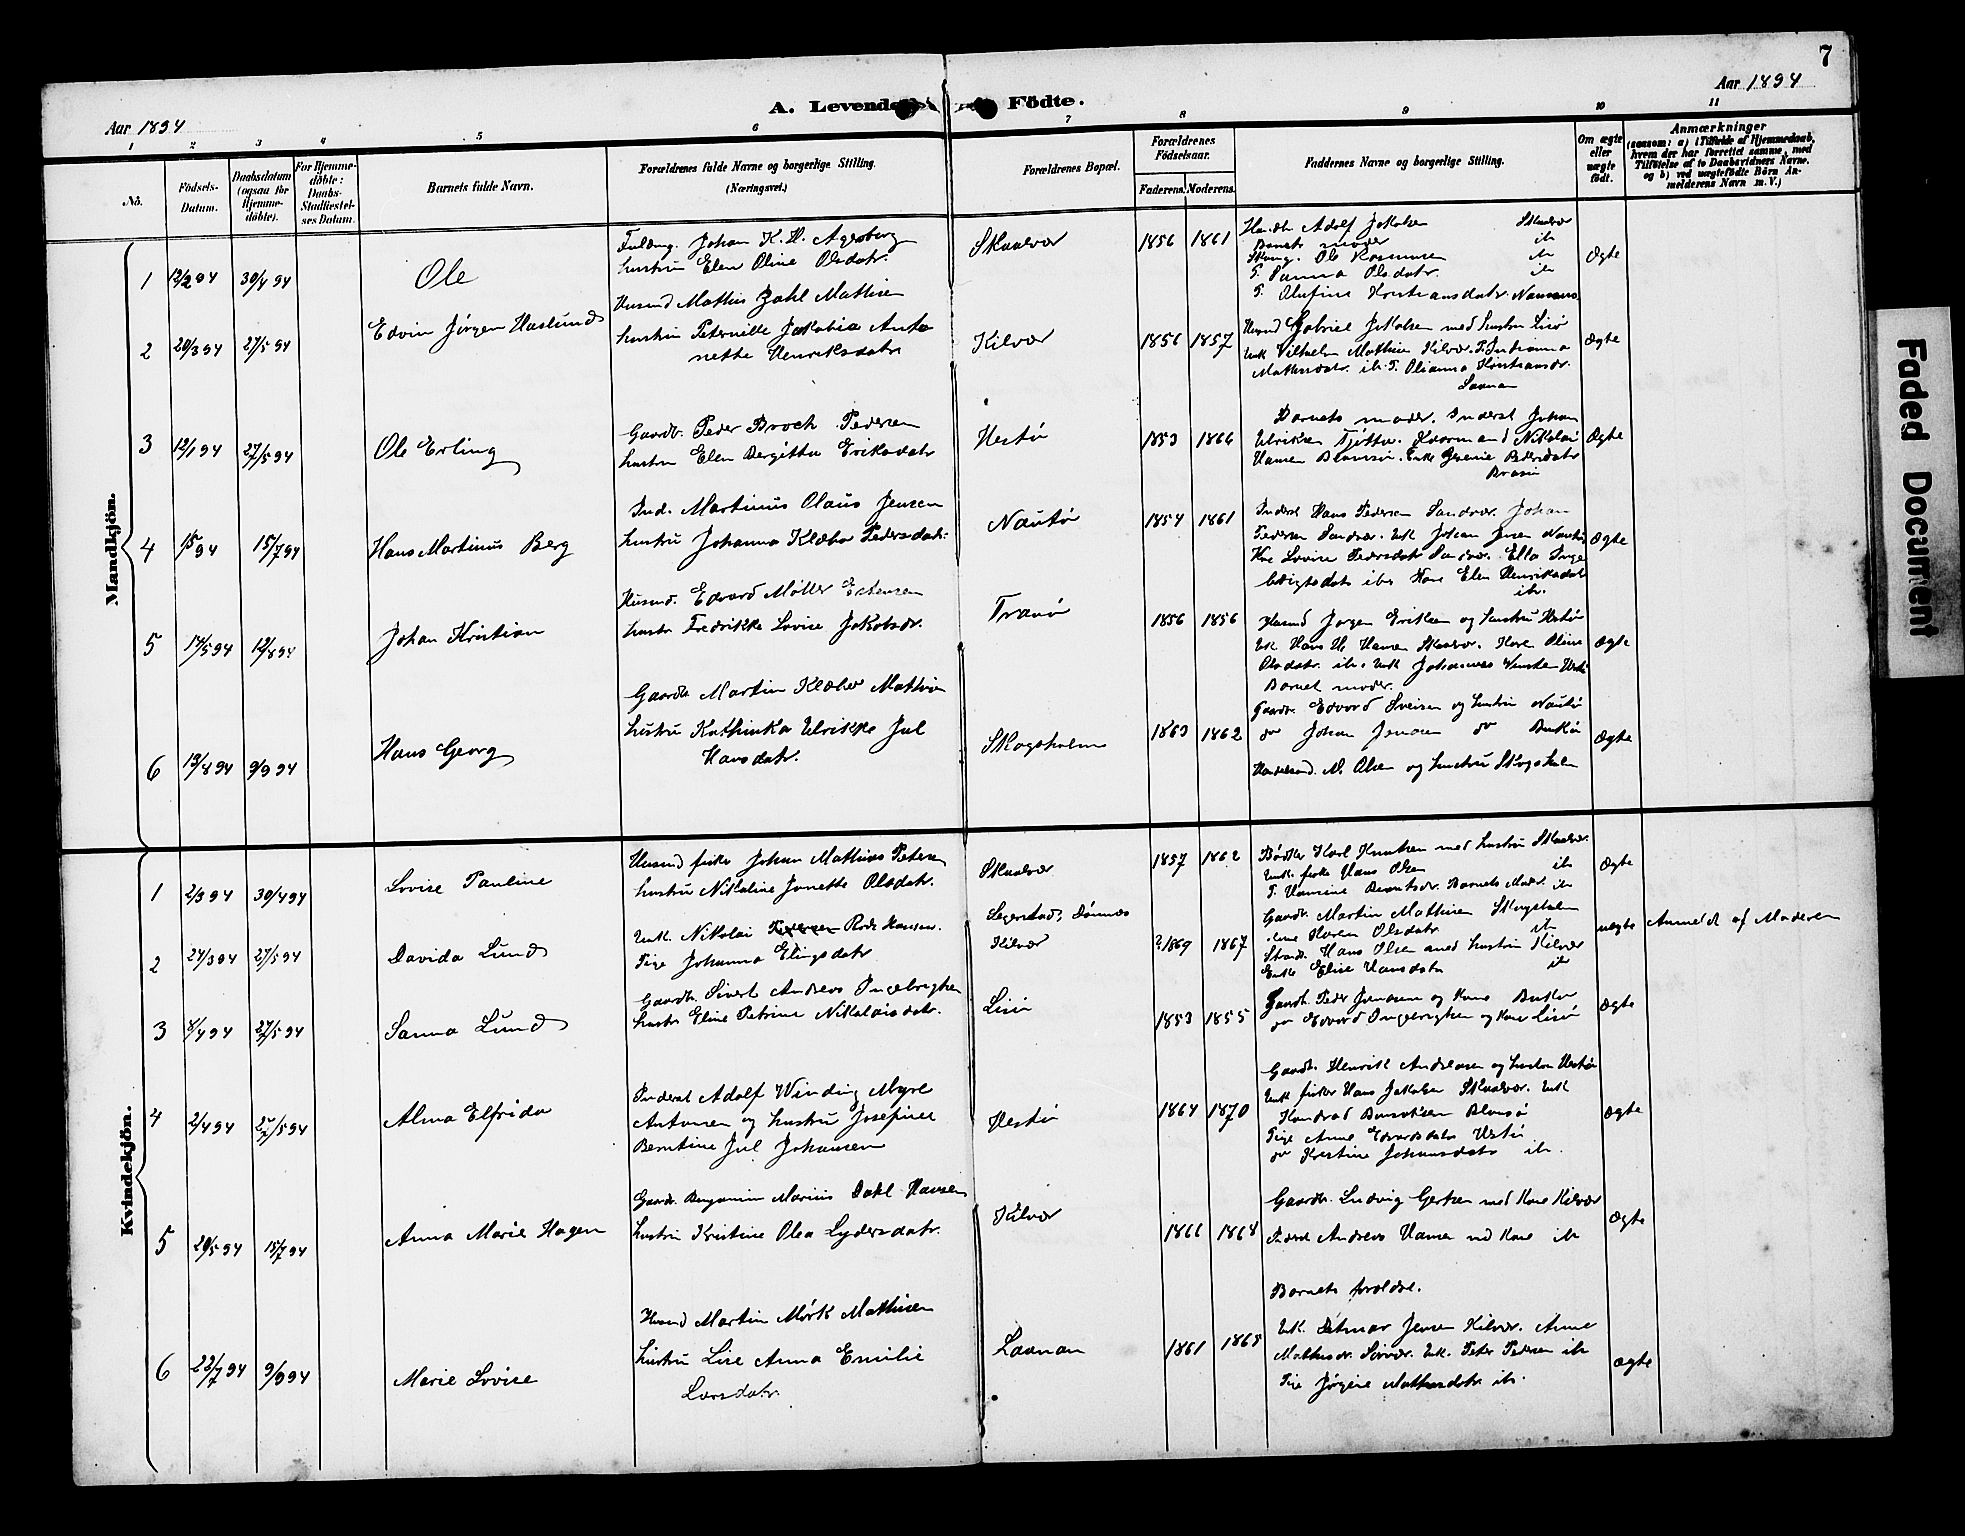 7
Aar 1894
Aar 1894
A. Levende Födte.
1 2 3 4 5 6 7 8 9 10 11
No.
Födsels-Datum.
Daabsdatum (ogsaa for Hjemmedöbte).
For Hjemmedöbte: Daabs-Stadfæstelses Datum.
Barnets fulde Navn.
Forældrenes fulde Navne og borgerlige Stilling. (Næringsvei.)
Forældrenes Bopæl.
Forældrenes Födselsaar.
Faderens. Moderens.
Faddernes Navne og borgerlige Stilling.
Om ægte eller uægte födt.
Anmærkninger
(saasom: a) i Tilfælde af Hjemmedaab, hvem der har forrettet samme, med Tilföielse af to Daabsvidners Navne, og b) ved uægtefödte Börn Anmelderens Navn m. V.)
Mandkjön.
1 12/2 94 30/4 94 Ole
Johan K. H. Agersborg
hustru Elen Oline Olsdatr.
Skaalvær 1856 1861
Handb. Adolf Jakobsen Skaalvær
Barnets moder ib
Ole Rasmussen ib
P. Sanna Olsdatr. ib
P. Olufine Kristiansdatr.
Ægte
2 20/3 94 27/5 94 Edvin Jörgen Haslund
Husmd Mathis Zahl Mathisen
hustru Peternille Jakobia Anto
nette Henriksdatr
Kilvær 1856 1857
Husmd Gabriel Jakobsen med hustru Lisö
Ungk Vilhelm Mathisen Kilvær.
Mathisdatr. ib. P. Olianna Kristiansdr.
Laanan
Ægte
3 12/1 94 27/5 94 Ole Erling
Gaardb. Peder Broch Pedersen
hustru Elen Bergitta Eriksdatr
Hestö 1853 1866
Barnets moder. Inderst Johan
Ulriksen Tjötta. Nikolai
Hansen Blomsö. Enke Pedersdatr
Brasö
Ægte
4 15/7 94 Hans Martinus Berg
Ind. Martinus Olaus Jensen
hustru Johanna Klæbo Pedersdatr.
Nautö 1854 1861
Inderst Hans Pedersen Sandvær. Johan
Pedersen Sandvær. Ungk Johan Jensen Nautö
Kone Lovise Pedersdatr Sandvær. Ella Inge
brigtsdatr ib. Kone Elen Henriksdatr
ib.
Ægte
5 14/5 94 12/8 94 Johan Kristian
Husmd. Edvard Möller
hustr. Fredrikke Lovise Jakobsdr.
Tranö 1856 1856
Husmd Jörgen Eriksen og hustru Hestö
Ungk Hans H. Hansen Skaalvær. Kone Oline
Olsdatr. ib. Ungk Johannes
Barnets moder.
Ægte
6 13/8 94 9/9 94 Hans Georg
Gaardb Martin Klæboe Mathisen
hustru Kathinka Ulrikke Jul
Hansdatr.
Skogsholm 1863 1862
Gaardb. Edvard Sveisen og hustru Nautö
do Johan Jensen do Bukö
M. Olsen og hustru Skogsholm
Ægte
Kvindekjön.
1 2/3 94 30/4 94 Lovise Pauline
Husmd fisker Johan Mathias Petersen
hustru Nikoline Jonette Olsdatr.
Skaalvær 1857 1862
Bödker Karl Knutsen med hustru Skaalvær
Ungk. fisker Hans Olsen ib
P. Hansine Berntsdr. Barnets Moder ib
Ægte
2 24/3 94 27/5 94 Davida Lund
Ungk. Nikolai Hansen.
Pige Johanna Elingsdatr
Dönnæs
Kilvær ?1869 1867
Gaardb. Martin Mathisen Skogsholm
Karen Olsdatr ib
Strands. Hans Olsen med hustru Kilvær
Enke Elise Hansdatr ib
uægte Anmeldt af Moderen
3 8/4 94 27/5 94 Sanna Lund
Gaardb. Sivert Andreas Ingebrigtsen
hustr Eline Petrine Nikolaisdatr.
Lisö 1853 1855
Gaardb. Peder Jonassen og Kone Bukö
do Edvard Ingebrigtsen og Kone Lisö
Ægte
4 2/4 94 27/5 94 Alma Elfrida
Inderst Adolf Winding Myrl
Antonsen og hustru Josefine
Berntine Jul Johansen
Hestö 1864 1870
Gaardb. Henrik Andreasen og hustru Hestö
Ungk fisker Hans Jakobsen Skaalvær. Ungk
Konrad Blomsö
Pige Anne Edvardsdatr Hestö
do Kristine Johansdatr ib.
Ægte
5 20/5 94 15/7 94 Anna Marie Hagen
Gaardb. Benjamin Marius Dahl Hansen
hustru Kristine Olea Lydersdatr.
Kilvær 1866 1868
Gaardb. Ludvig Gertsen med Kone Kilvær
Inderst Andreas Hansen med Kone ib
Ægte
6 22/7 94 9/9 94 Marie Lovise
Husmd Martin Mörk Mathisen
hustru Lise Anna Emilie
Larsdatr.
Laanan 1861 1868
Barnets forældre.
Ungk. Detmar Jensen Kilvær. Anne
Mathisdr. Sörvær. Ungk. Peter Pedersen ib
Pige Jörgine Mathisdatr ib.
Ægte
Faded Document